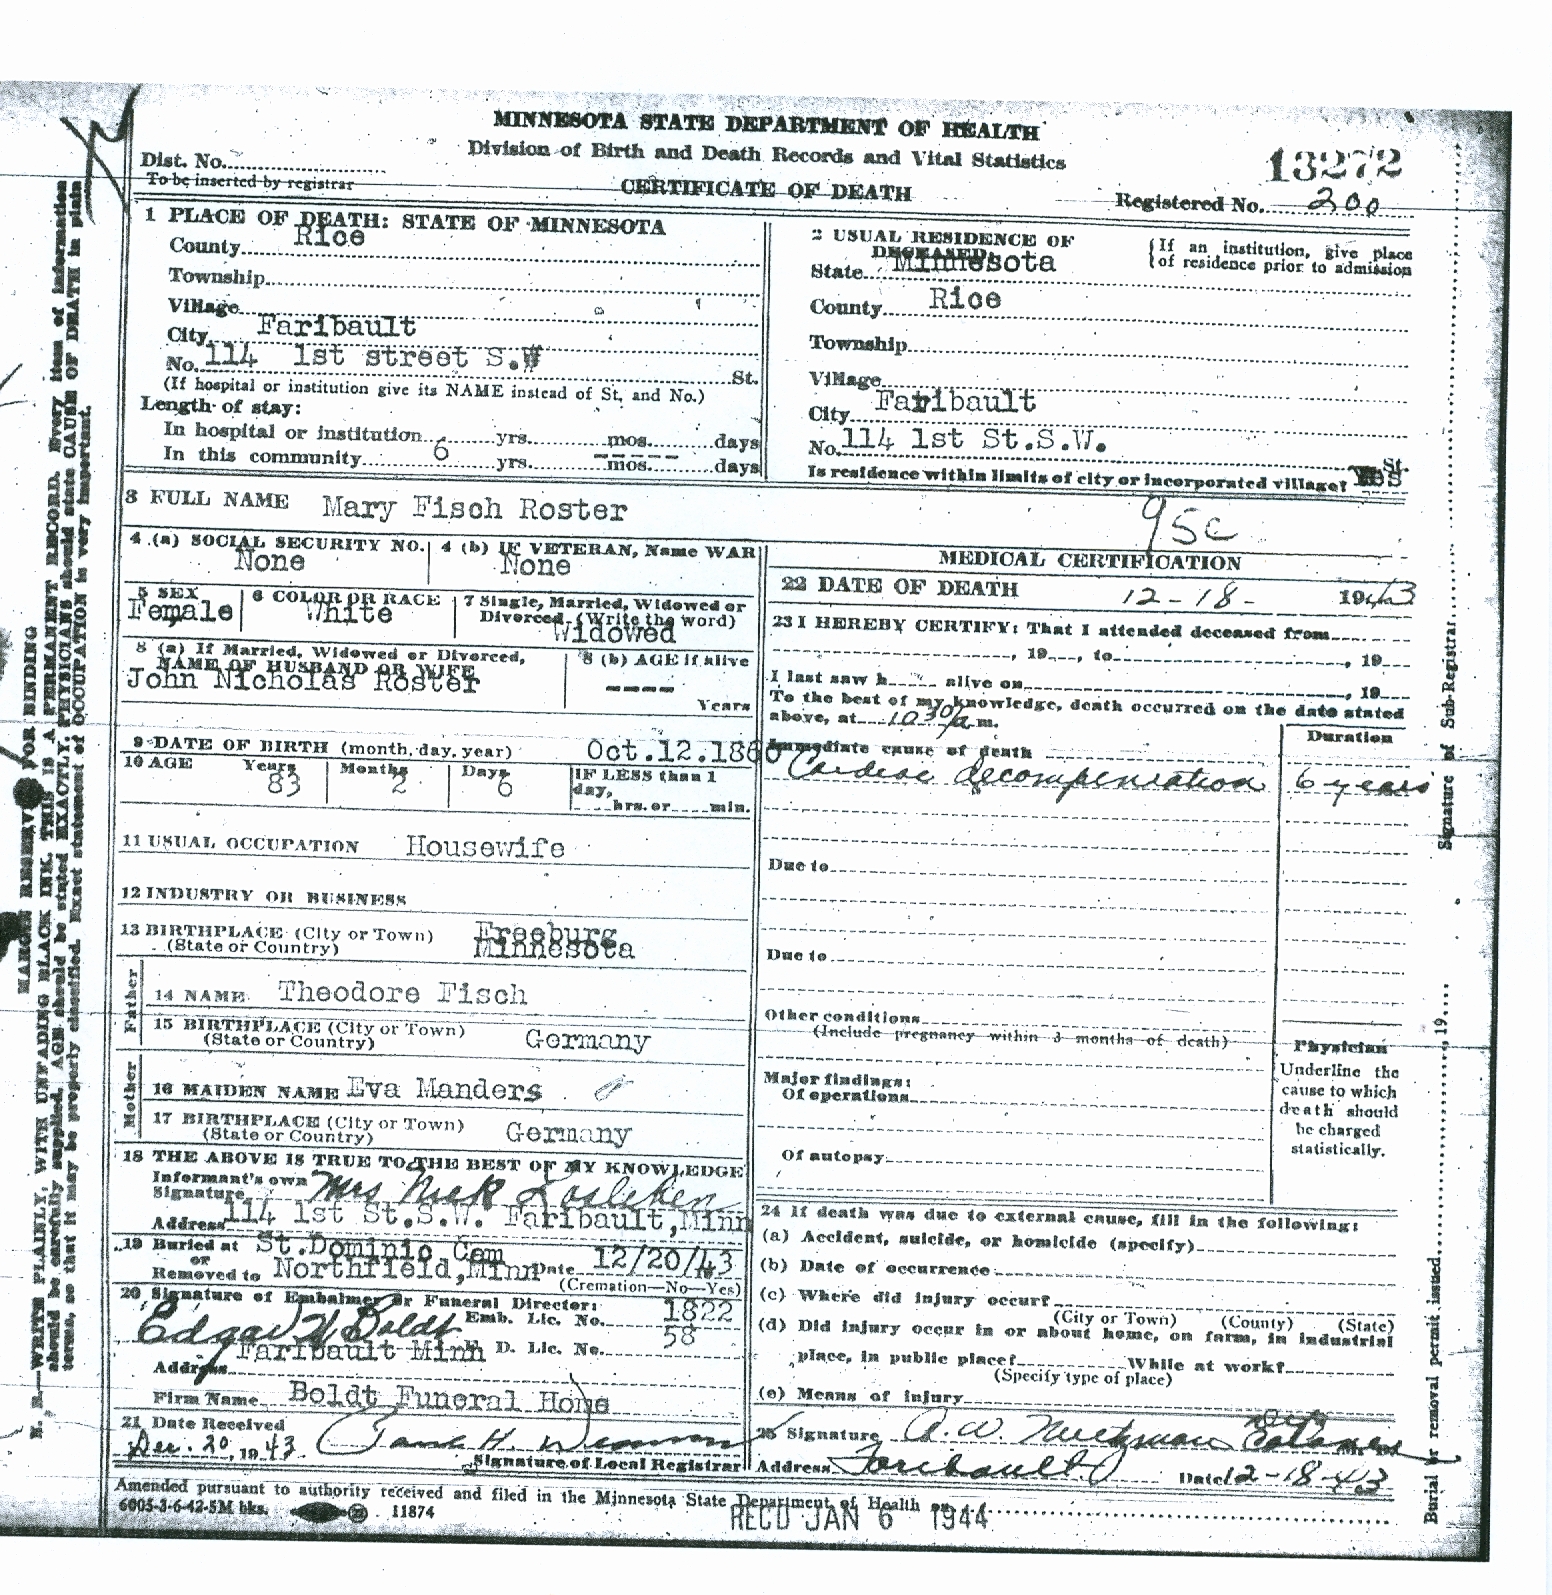 MINNESOTA STATE DEPARTMENT OF HEALTH
Division of Birth and Death Records and Vital Statistics
CERTIFICATE OF DEATH
13272
Dist. No.
To be inserted by registrar
Registered No. 200
1 PLACE OF DEATH: STATE OF MINNESOTA
County Rice
Township
Village
City Faribault
No. 114 1st street S.W St.
(If hospital or institution give its NAME instead of St. and No.)
Length of stay:
In hospital or institution yrs. mos. days
In this community 6 yrs. ---- mos. days
2 USUAL RESIDENCE OF DECEASED:
{If an institution, give place
{of residence prior to admission
State Minnesota
County Rice
Township
Village
City Faribault
No. 114 1st St.S.W. St.
Is residence within limits of city or incorporated village? Yes
3 FULL NAME Mary Fisch Roster
95c
4 (a) SOCIAL SECURITY NO. None
4 (b) IF VETERAN, Name WAR None
5 SEX Female
6 COLOR OR RACE White
7 Single, Married, Widowed or Divorced (Write the word) Widowed
8 (a) If Married, Widowed or Divorced,
NAME OF HUSBAND OR WIFE
John Nicholas Roster
8 (b) AGE if alive ---- Years
9 DATE OF BIRTH (month, day, year) Oct.12.1860
10 AGE Years 83 Months 2 Days 6
IF LESS than 1 day, hrs. or min.
11 USUAL OCCUPATION Housewife
12 INDUSTRY OR BUSINESS
13 BIRTHPLACE (City or Town) Freeburg
(State or Country) Minnesota
Father
14 NAME Theodore Fisch
15 BIRTHPLACE (City or Town)
(State or Country) Germany
Mother
16 MAIDEN NAME Eva Manders
17 BIRTHPLACE (City or Town)
(State or Country) Germany
18 THE ABOVE IS TRUE TO THE BEST OF MY KNOWLEDGE
Informant's own
Signature Mrs Nick
Address 114 1st St.S.W. Faribault,Minn
19 Buried at St.Dominic Cem
or
Removed to Northfield,Minn Date 12/20/43
(Cremation—No—Yes)
20 Signature of Embalmer or Funeral Director:
Edgar Boldt Emb. Lic. No. 1822
D. Lic. No. 58
Address Faribault Minn
Firm Name Boldt Funeral Home
21 Date Received
Dec. 20, 1943
Signature of Local Registrar
MEDICAL CERTIFICATION
22 DATE OF DEATH 12-18- 1943
23 I HEREBY CERTIFY: That I attended deceased from
, 19 , to , 19
I last saw h alive on , 19
To the best of my knowledge, death occurred on the date stated
above, at 1030 a m.
Duration
Immediate cause of death
Cardiac decompensation 6 years
Due to
Due to
Other conditions
(Include pregnancy within 3 months of death)
Major findings:
Of operations
Of autopsy
Physician
Underline the
cause to which
death should
be charged
statistically.
24 If death was due to external cause, fill in the following:
(a) Accident, suicide, or homicide (specify)
(b) Date of occurrence
(c) Where did injury occur?
(City or Town) (County) (State)
(d) Did injury occur in or about home, on farm, in industrial
place, in public place? While at work?
(Specify type of place)
(e) Means of injury
25 Signature A. W.
Address Faribault Date 12-18-43
Amended pursuant to authority received and filed in the Minnesota State Department of Health on
6005-3-6-42-5M bks. 11874
REC'D JAN 6 1944
MARGIN RESERVED FOR BINDING
N. B.—WRITE PLAINLY, WITH UNFADING BLACK INK. THIS IS A PERMANENT RECORD. Every item of information
should be carefully supplied. AGE should be stated EXACTLY. PHYSICIANS should state CAUSE OF DEATH in plain
terms, so that it may be properly classified. Exact statement of OCCUPATION is very important.
Burial or removal permit issued , 19 Signature of Sub-Registrar